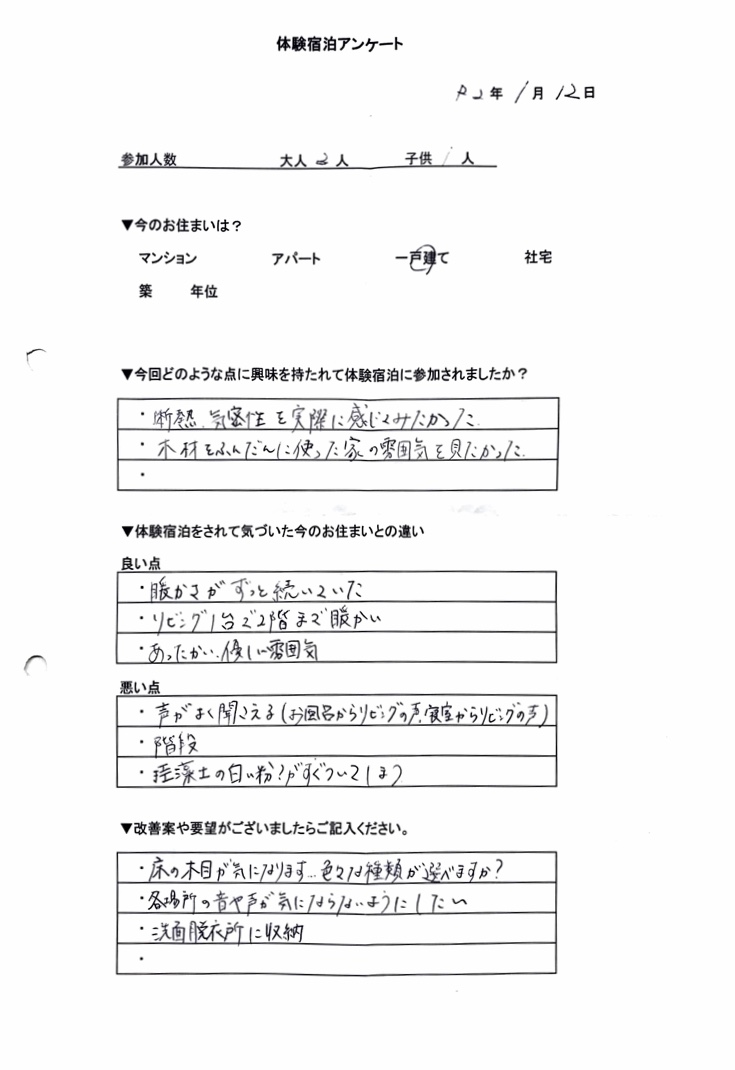 体験宿泊アンケート
R2年 1月 12日
参加人数 大人 2人 子供 1人
▼今のお住まいは？
マンション アパート 一戸建て 社宅
築 年位
▼今回どのような点に興味を持たれて体験宿泊に参加されましたか？
・断熱、気密性を実際に感じてみたかった。
・木材をふんだんに使った家の雰囲気を見たかった。
・
▼体験宿泊をされて気づいた今のお住まいとの違い
良い点
・暖かさがずっと続いていた
・リビング1台で2階まで暖かい
・あったかい、優しい雰囲気
悪い点
・声がよく聞こえる(お風呂からリビングの声、寝室からリビングの声)
・階段
・珪藻土の白い粉？がすぐついてしまう
▼改善案や要望がございましたらご記入ください。
・床の木目が気になります…色々な種類が選べますか？
・各場所の音や声が気にならないようにしたい
・洗面脱衣所に収納
・